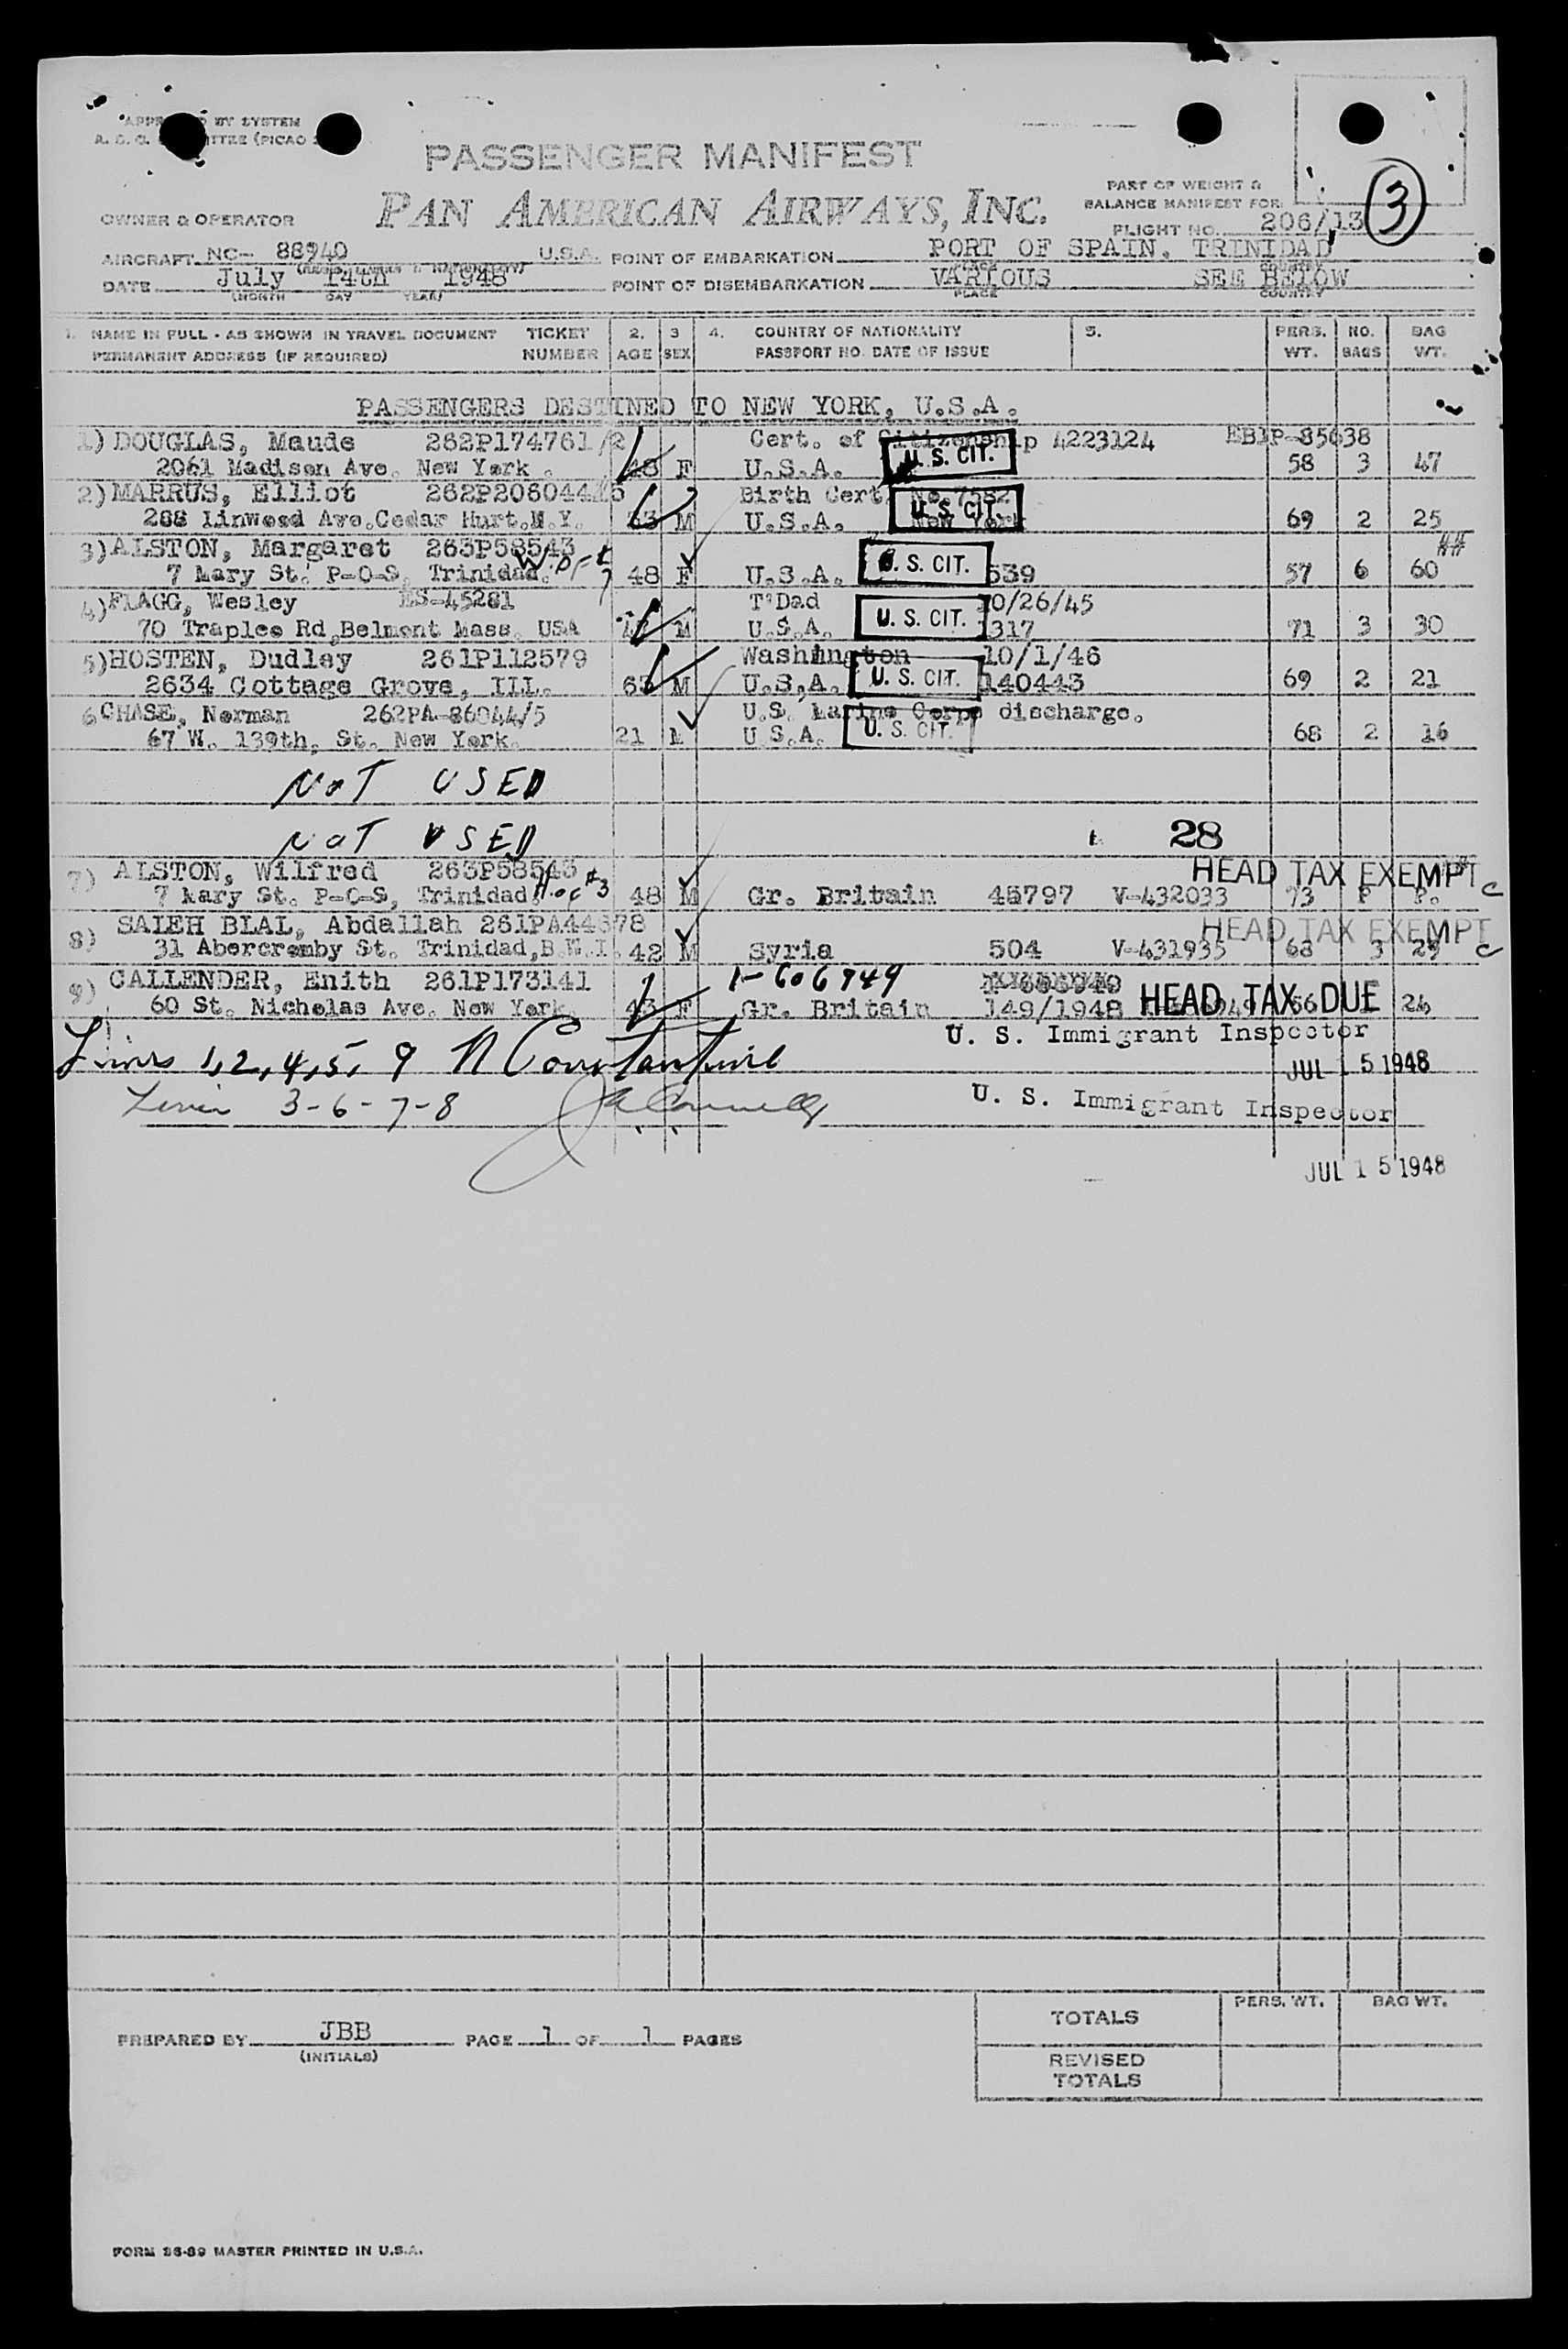 APPROVED BY SYSTEM
A. C. G. COMMITTEE (PICAO
PASSENGER MANIFEST
PAN AMERICAN AIRWAYS, INC.
PART OF WEIGHT &
BALANCE MANIFEST FOR:
3
OWNER & OPERATOR
FLIGHT NO. 206/13
AIRCRAFT NC- 88940 U.S.A. POINT OF EMBARKATION PORT OF SPAIN, TRINIDAD
DATE July 14th 1948 POINT OF DISEMBARKATION VARIOUS SEE BELOW
(MONTH DAY YEAR) PLACE COUNTRY
1. NAME IN FULL - AS SHOWN IN TRAVEL DOCUMENT TICKET 2. 3 4. COUNTRY OF NATIONALITY 5. PERS. NO. BAG
PERMANENT ADDRESS (IF REQUIRED) NUMBER AGE SEX PASSPORT NO. DATE OF ISSUE WT. BAGS WT.
PASSENGERS DESTINED TO NEW YORK, U.S.A.
1) DOUGLAS, Maude 262P174761/2 Cert. of Citizenship 4223124 EB1P-85638
2061 Madison Ave. New York. F U.S.A. U. S. CIT. 58 3 47
2) MARRUS, Elliot 262P206044 Birth Cert. No. 7582
288 Linwood Ave. Cedar Hurt. N.Y. 33 M U.S.A. U. S. CIT. New York 69 2 25
3) ALSTON, Margaret 263P58543
7 Mary St. P-O-S, Trinidad. 48 F U.S.A. U. S. CIT. 539 57 6 60
4) FLAGG, Wesley ES-45281 T'Dad 10/26/45
70 Traplee Rd, Belmont Mass. USA M U.S.A. U. S. CIT. 317 71 3 30
5) HOSTEN, Dudley 261P112579 Washington 10/1/46
2634 Cottage Grove, ILL. 63 M U.S.A. U. S. CIT. 140443 69 2 21
6 CHASE, Norman 262PA-86044/5 U.S. Marine Corps discharge.
67 W. 139th, St. New York. 21 M U.S.A. U. S. CIT. 68 2 16
NOT USED
NOT USED 28
7) ALSTON, Wilfred 263P58543 HEAD TAX EXEMPT
7 Mary St. P-O-S, Trinidad 48 M Gr. Britain 45797 V-432033 73 P P. C
8) SALEH BLAL, Abdallah 261PA44378 HEAD TAX EXEMPT
31 Abercromby St. Trinidad, B.W.I. 42 M Syria 504 V-431935 68 3 29 C
9) CALLENDER, Enith 261P173141 1-606949
60 St. Nicholas Ave. New York. 43 F Gr. Britain 149/1948 HEAD TAX DUE 56 24
U. S. Immigrant Inspector
Lines 1, 2, 4, 5, 9 N Constantine JUL 15 1948
Lines 3-6-7-8 U. S. Immigrant Inspector
JUL 15 1948
PREPARED BY JBB PAGE 1 OF 1 PAGES
(INITIALS)
TOTALS PERS. WT. BAG WT.
REVISED
TOTALS
FORM 36-89 MASTER PRINTED IN U.S.A.